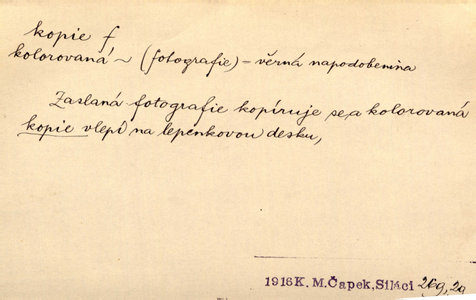 kopie f
kolorovaná ~ (fotografie) – věrná napodobenina
Zaslaná fotografie kopíruje se a kolorovaná
kopie vlepí na lepenkovou desku,
1916 K. M. Čapek, Siláci 269, 20